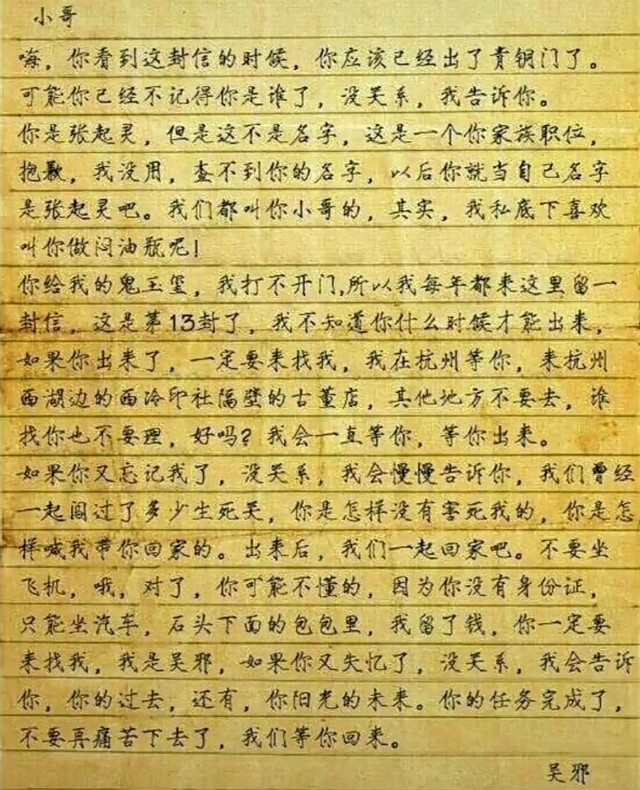 小哥
嗨，你看到这封信的时候，你应该已经出了青铜门了。
可能你已经不记得你是谁了，没关系，我告诉你。
你是张起灵，但是这不是名字，这是一个你家族职位，
抱歉，我没用，查不到你的名字，以后你就当自己名字
是张起灵吧。我们都叫你小哥的，其实，我私底下喜欢
叫你做闷油瓶呢！
你给我的鬼玉玺，我打不开门，所以我每年都来这里留一
封信，这是第13封了，我不知道你什么时候才能出来，
如果你出来了，一定要来找我，我在杭州等你，来杭州
西湖边的西冷印社隔壁的古董店，其他地方不要去，谁
找你也不要理，好吗？我会一直等你，等你出来。
如果你又忘记我了，没关系，我会慢慢告诉你，我们曾经
一起闯过了多少生死关，你是怎样没有害死我的，你是怎
样喊我带你回家的。出来后，我们一起回家吧。不要坐
飞机，哦，对了，你可能不懂的，因为你没有身份证，
只能坐汽车，石头下面的包包里，我留了钱，你一定要
来找我，我是吴邪，如果你又失忆了，没关系，我会告诉
你，你的过去，还有，你阳光的未来。你的任务完成了，
不要再痛苦下去了，我们等你回来。
吴邪